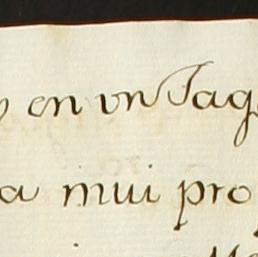 en vn Tag
a mui pro